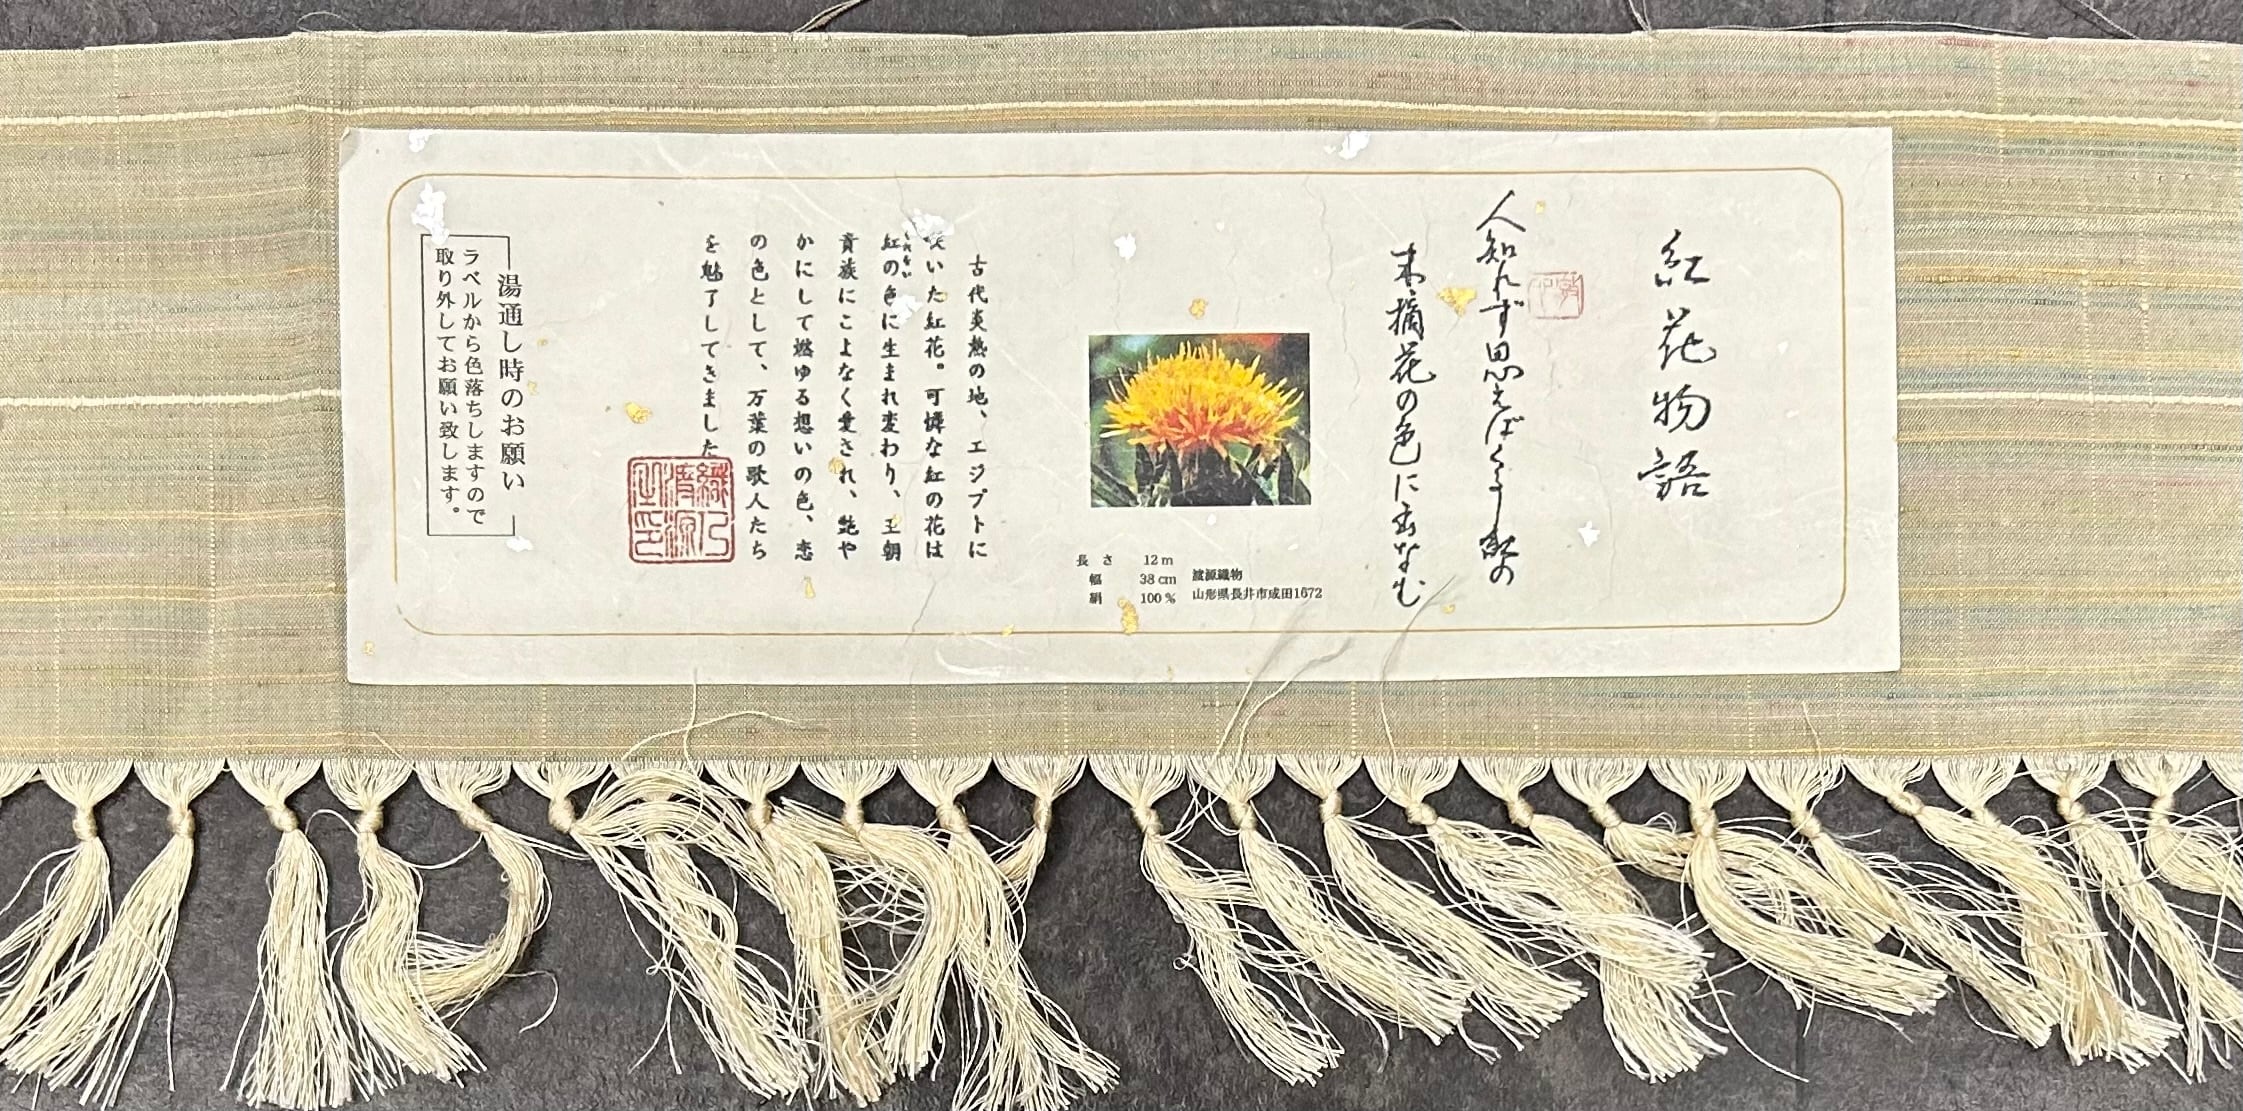 紅花物語
人知れず思えばくるし紅の
末摘花の色に出なむ
長さ 12m
幅 38cm
絹 100%
渡源織物
山形県長井市成田1672
古代炎熱の地、エジプトに
咲いた紅花。可憐な紅の花は
紅の色に生まれ変わり、王朝
くれない
貴族にこよなく愛され、艶や
かにして燃ゆる想いの色、恋
の色として、万葉の歌人たち
を魅了してきました
湯通し時のお願い
ラベルから色落ちしますので
取り外してお願い致します。